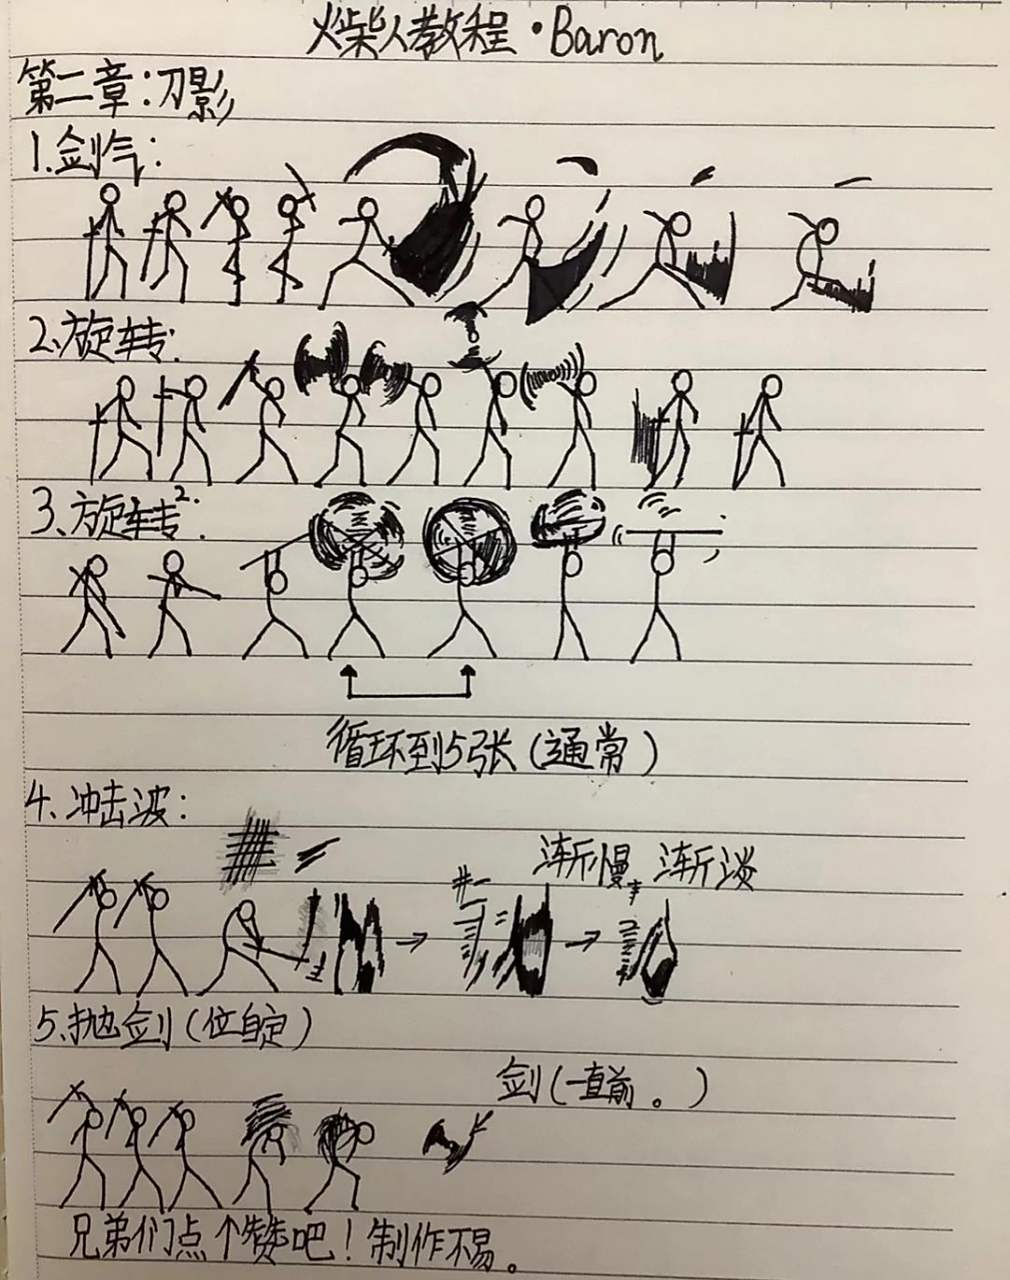 火柴人教程·Baron
第二章:刀影
1.剑气:
2.旋转:
3.旋转²:
循环到5张(通常)
4.冲击波:
渐慢,渐淡
5.抛剑(位自定)
剑(一直前。)
兄弟们点个赞吧!制作不易。